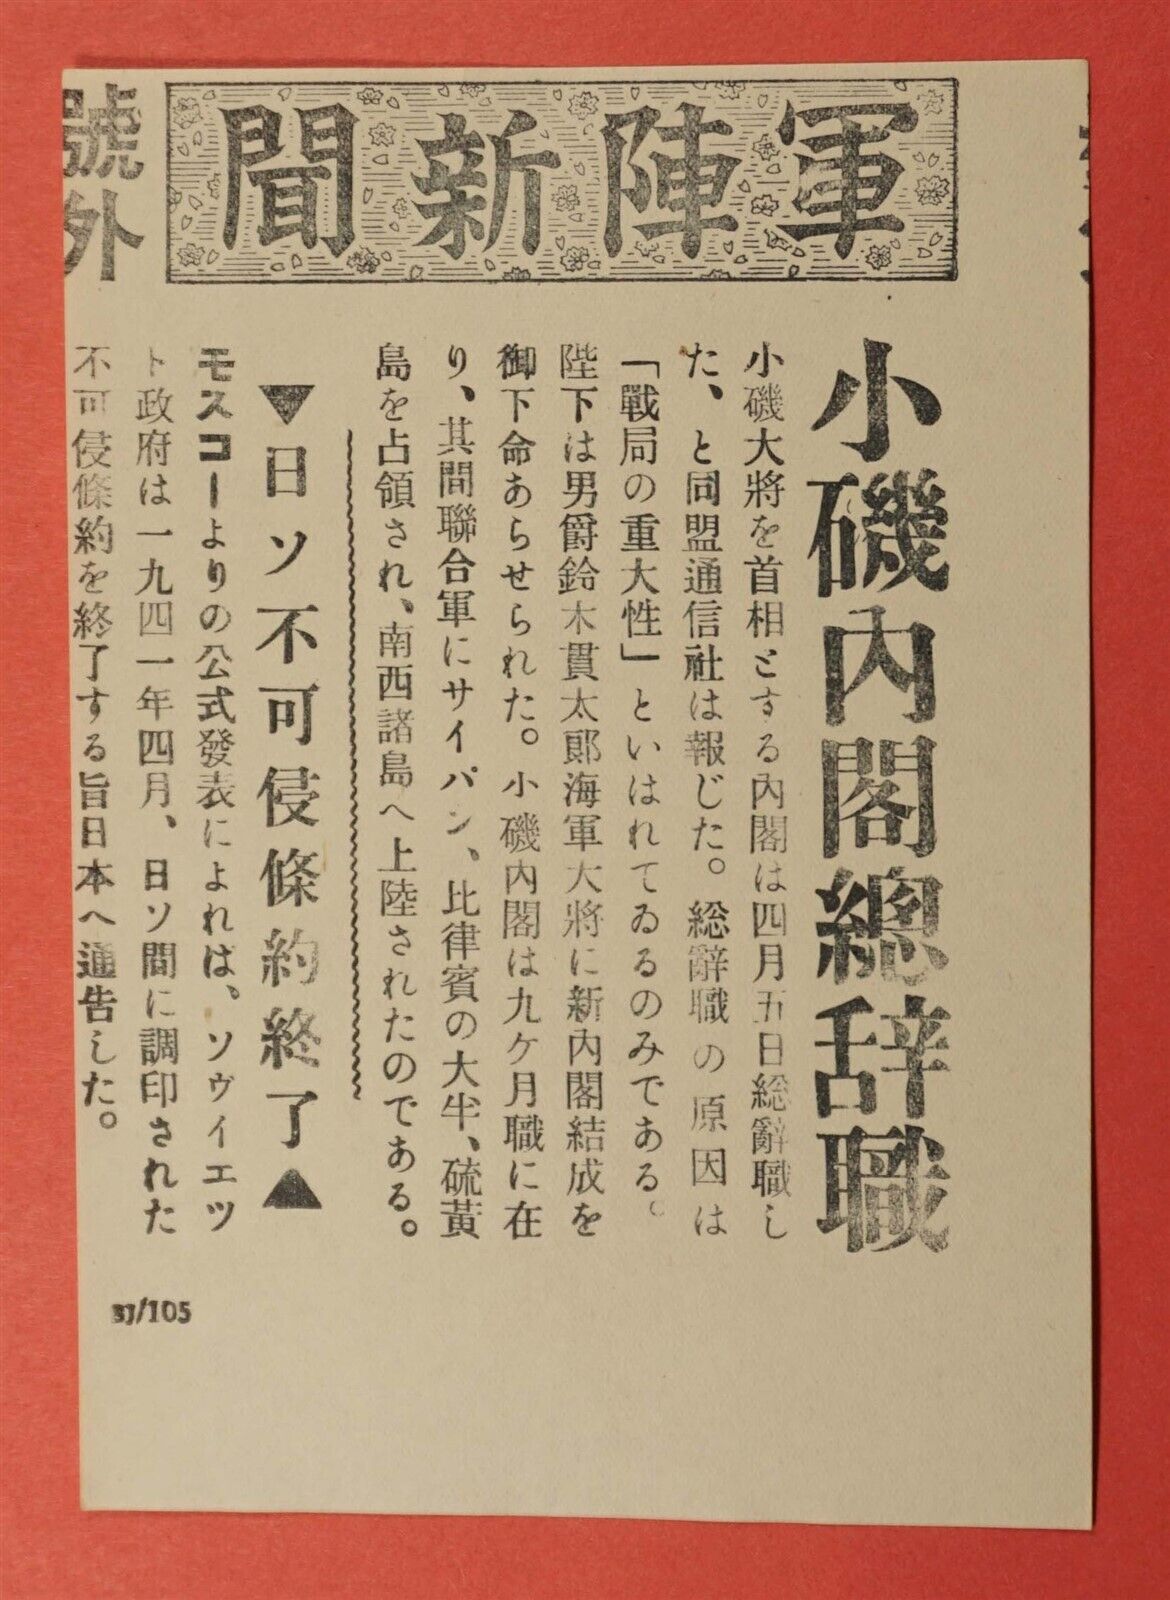 軍陣新聞
號外
小磯内閣總辞職
小磯大將を首相とする内閣は四月五日総辭職し
た、と同盟通信社は報じた。総辭職の原因は
「戰局の重大性」といはれてゐるのみである。
陛下は男爵鈴木貫太郞海軍大將に新内閣結成を
御下命あらせられた。小磯内閣は九ケ月職に在
り、其間聯合軍にサイパン、比律賓の大半、硫黃
島を占領され、南西諸島へ上陸されたのである。
▼日ソ不可侵條約終了▲
モスコーよりの公式發表によれは、ソヴィエツ
ト政府は一九四一年四月、日ソ間に調印された
不可侵條約を終了する旨日本へ通告した。
BJ/105